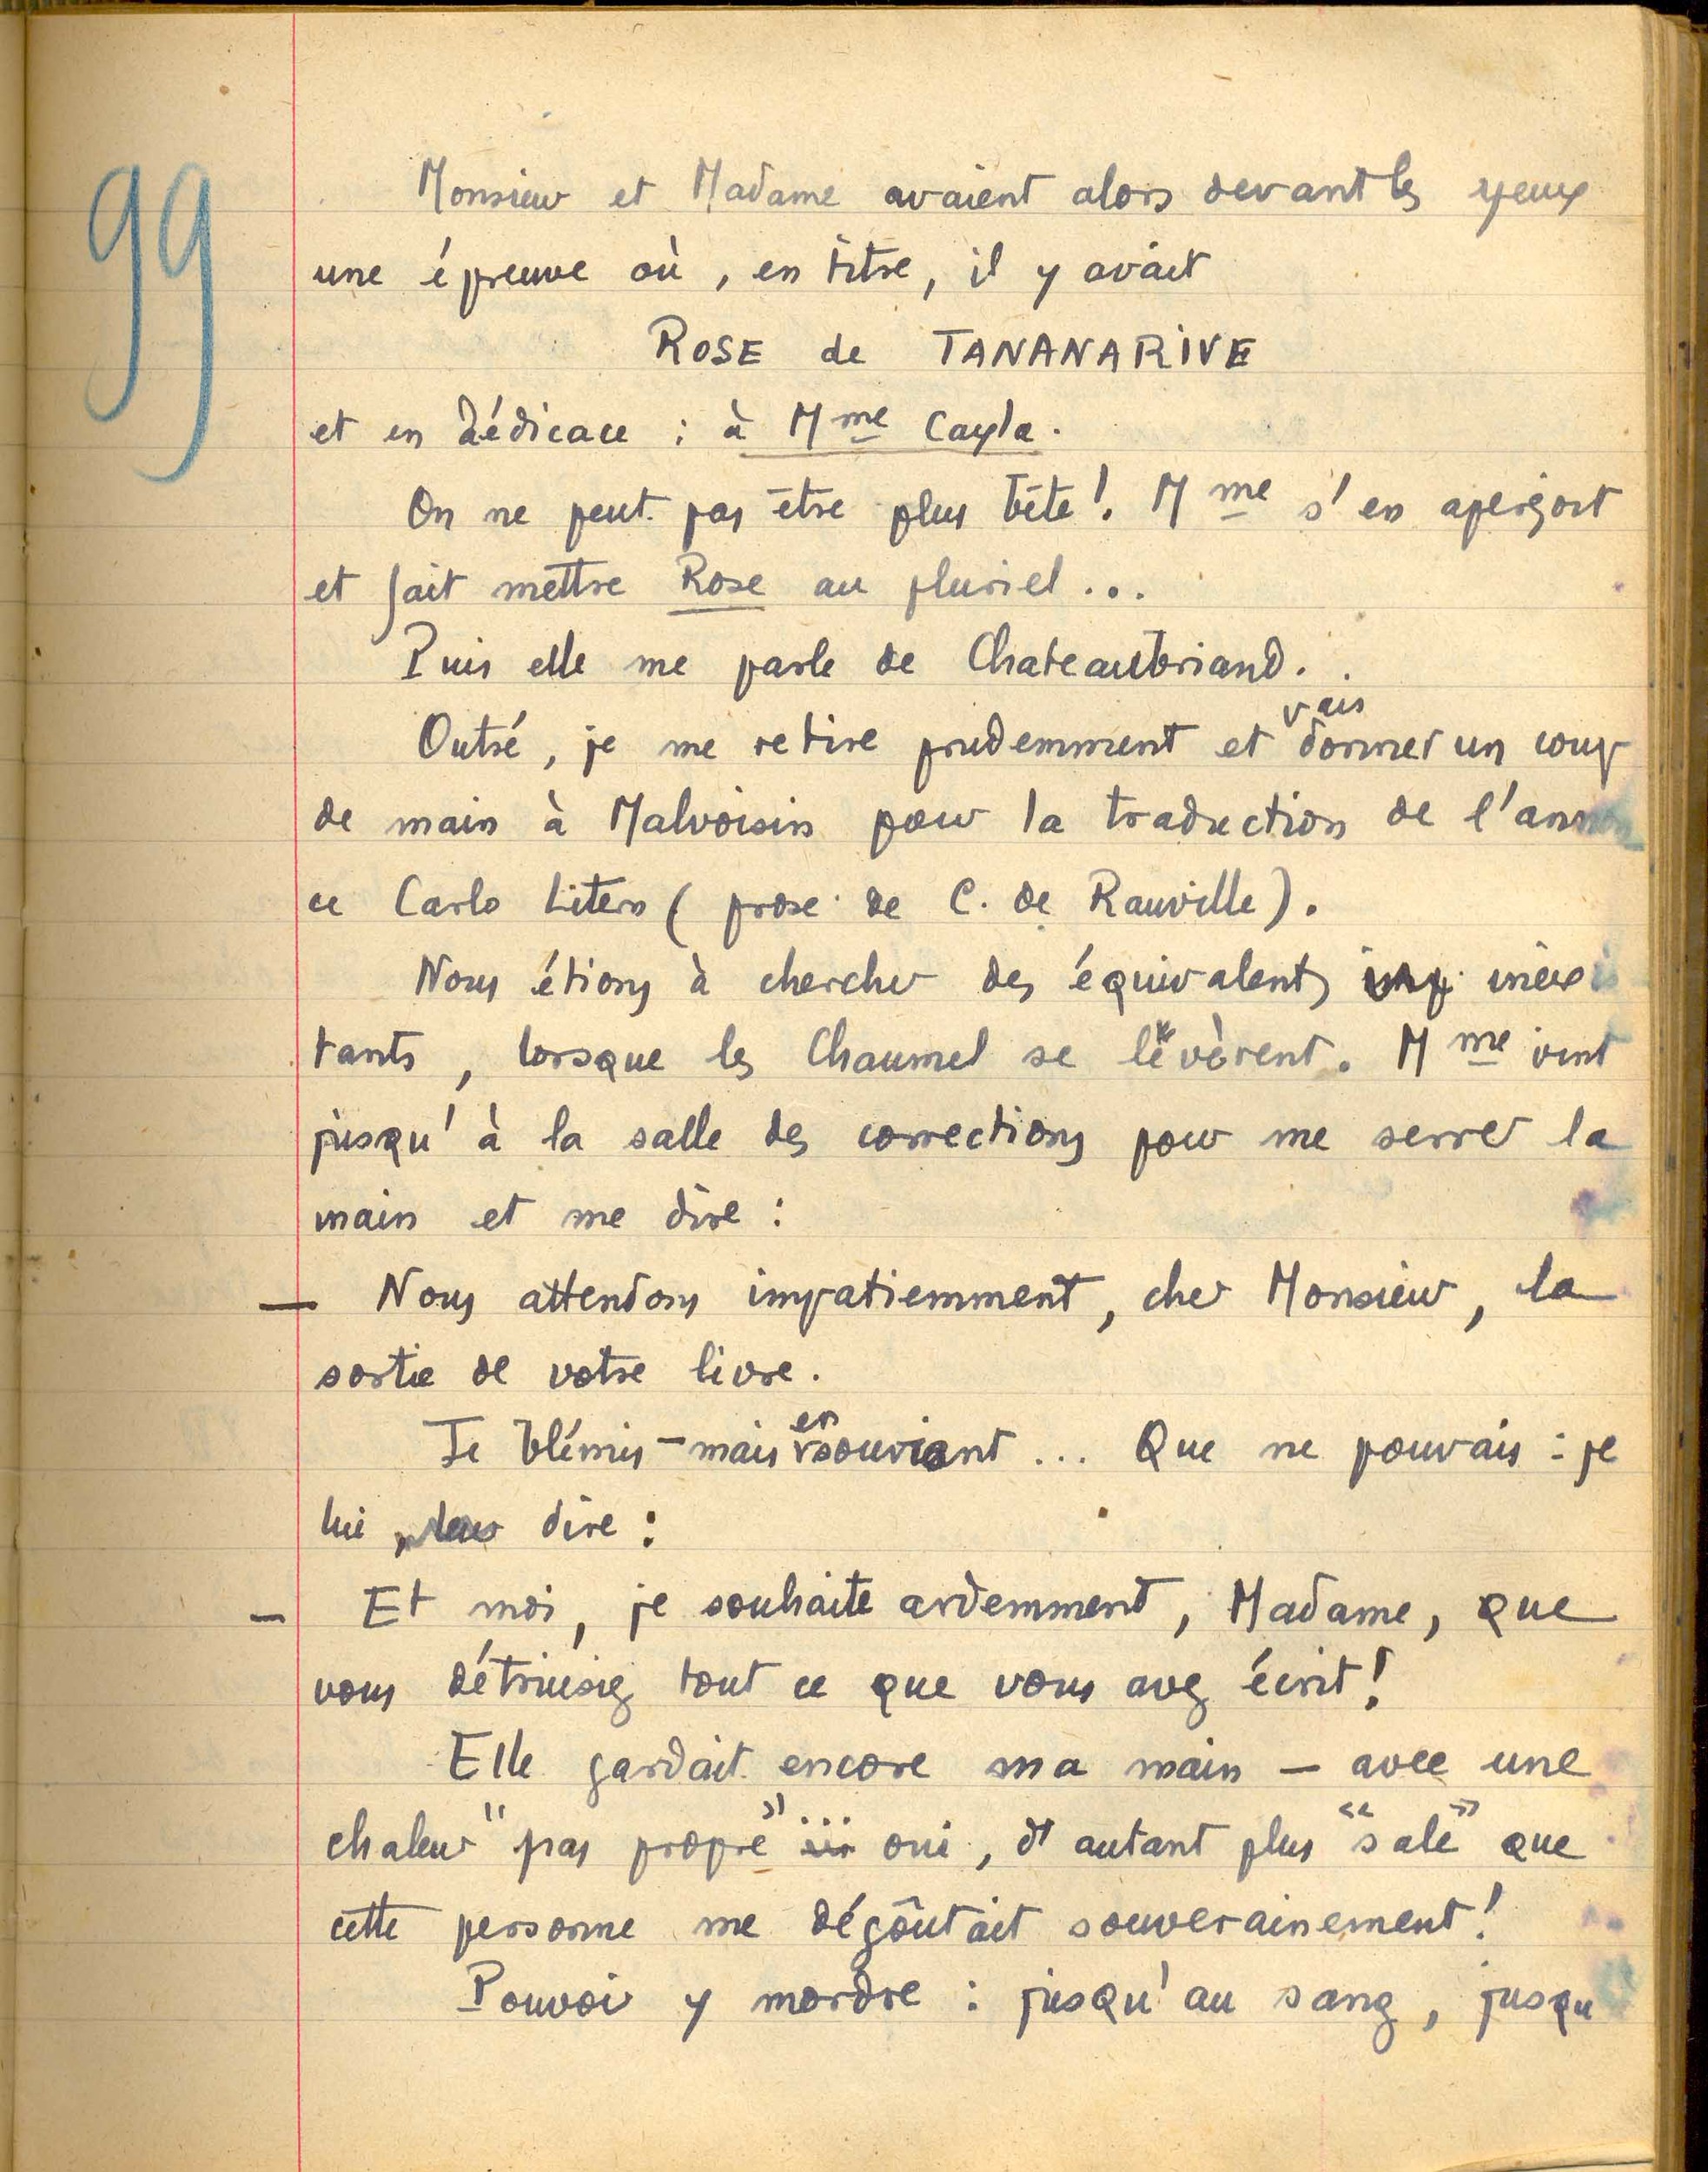 99
Monsieur et Madame avaient alors devant les yeux
une épreuve où, en titre, il y avait
ROSE de TANANARIVE
et en dédicace : à Mme Cayla.
On ne peut pas être plus bête! Mme s'en aperçoit
et fait mettre Rose au pluriel...
Puis elle me parle de Chateaubriand.
Outré, je me retire prudemment et vais donner un coup
de main à Malvoisin pour la traduction de l'annon
ce Carlo Liten (prose de C. de Rauville).
Nous étions à chercher des équivalents inexis
tants, lorsque les Chaumel se levèrent. Mme vint
jusqu'à la salle des corrections pour me serrer la
main et me dire :
— Nous attendons impatiemment, cher Monsieur, la
sortie de votre livre.
Je blémis - mais en souriant ... Que ne pouvais-je
lui dire :
— Et moi, je souhaite ardemment, Madame, que
vous détruisiez tout ce que vous avez écrit!
Elle gardait encore ma main — avec une
chaleur "pas propre" ... oui, d'autant plus "sale" que
cette personne me dégoûtait souverainement!
Pouvoir y mordre : jusqu'au sang, jusqu